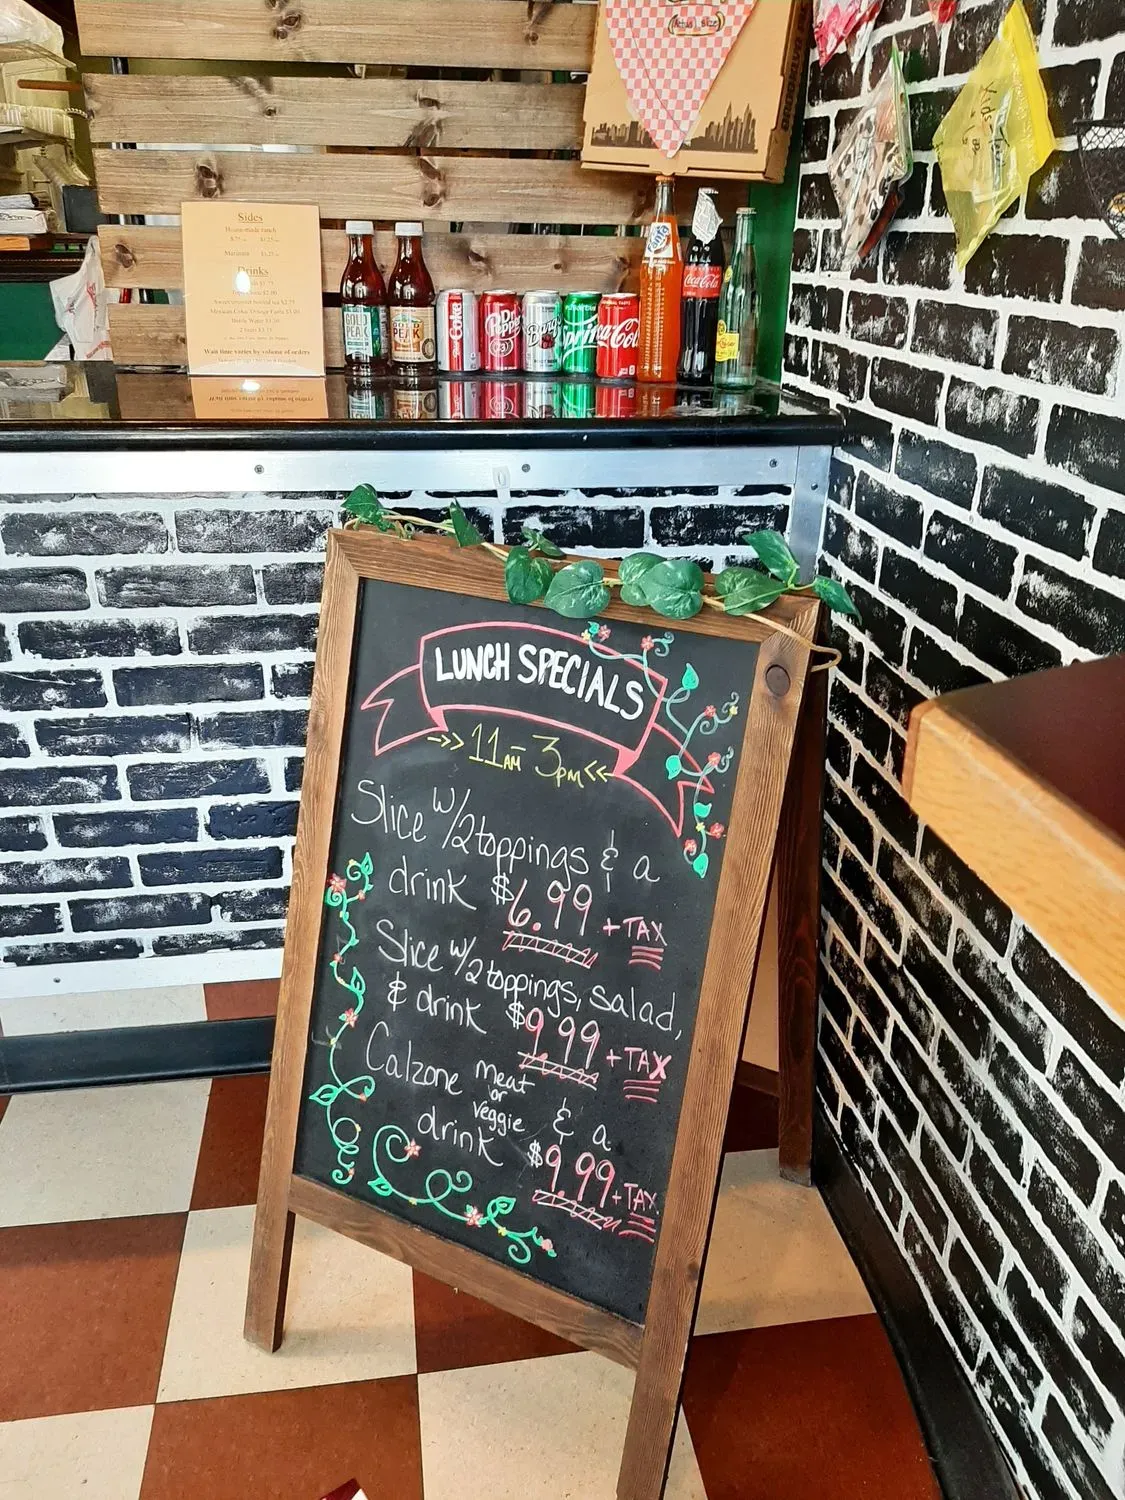 (Actual size)
BROOKLYN
Sides
House-made ranch
$.75 $1.25
Marinara $1.25
Drinks
Mexican Coke/Orange Fanta $3.00
Bottle Water
2 liters
Wait time varies by volume of orders
GOLD PEAK
GOLD PEAK
Coke
Dr Pepper
23
Barq's
Sprite
Coca-Cola
Fanta
Coca-Cola
LUNCH SPECIALS
->>> 11AM - 3PM <<-
Slice w/2 toppings & a
drink $6.99 + TAX
Slice w/2 toppings, salad,
& drink $9.99 + TAX
Calzone meat or veggie & a
drink $9.99 + TAX